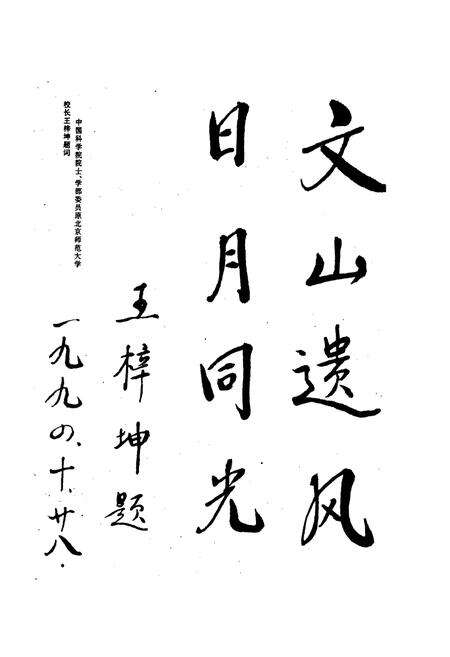 文山遗风
日月同光
王梓坤题
一九九〇、十、廿八.
中国科学院院士、学部委员原北京师范大学
校长王梓坤题词